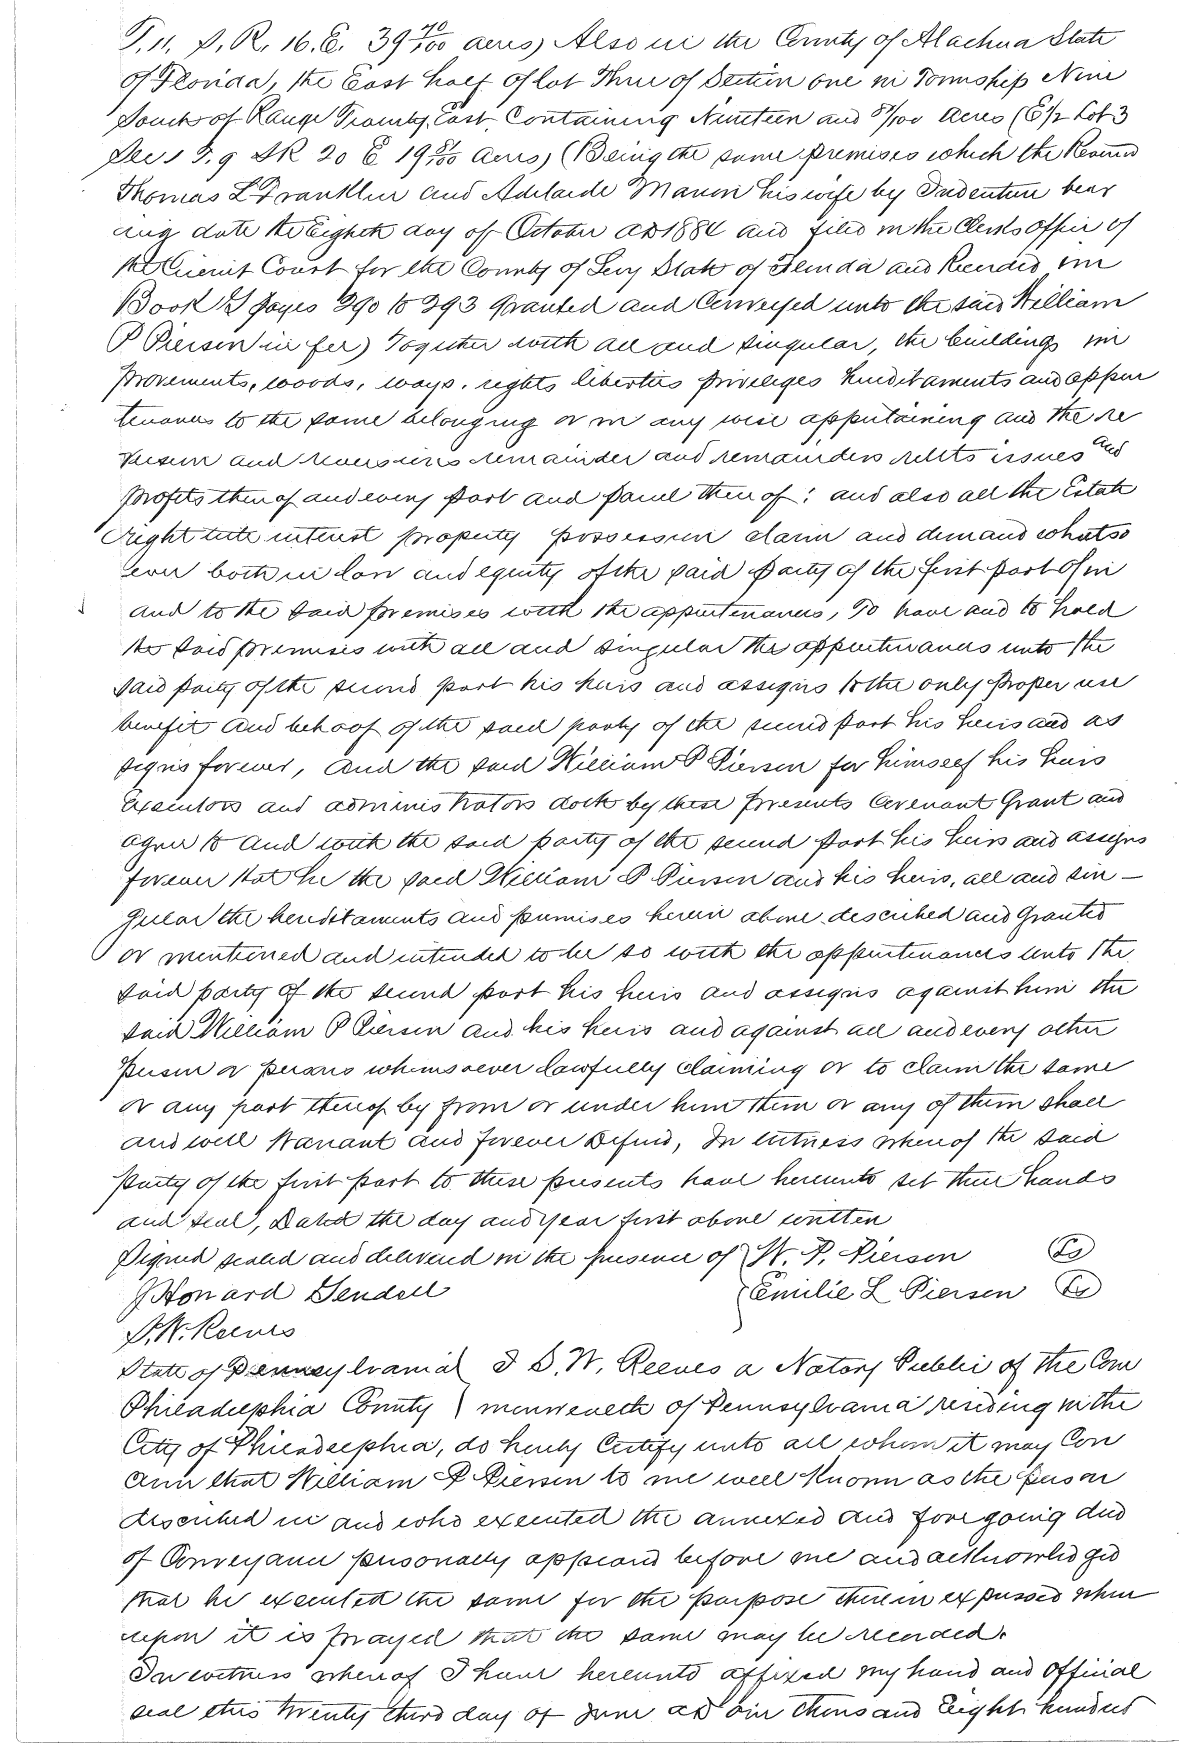 T. 11. S. R. 16. E. 39 70/100 acres) Also in the County of Alachua State
of Florida, the East half of lot Three of Section one in Township Nine
South of Range Twenty East, Containing Nineteen and 81/100 Acres (E 1/2 Lot 3
Sec 1 T. 9 S R 20 E 19 81/100 Acres) (Being the same premises which the Revernd
Thomas L Franklin and Adelaide Manon his wife by Indenture bear
ing date the Eighth day of October AD 1884 and filed in the Clerks office of
the Circuit Court for the County of Levy State of Florida and Recorded in
Book pages 290 to 293 granted and Conveyed unto the said William
P Pierson in fee) Together with all and singular, the buildings im
provements, woods, ways, rights liberties priveleges hereditaments and appur
tenances to the same belonging or in any wise appurtaining and the re
version and reversions remainder and remainders rents issues and
profits thereof and every part and parcel thereof: and also all the Estate
right title interest property possession claim and demand whatso
ever both in law and equity of the said party of the first part of in
and to the said premises with the appurtenances, To have and to hold
the said premises with all and singular the appurtenances unto the
said party of the second part his heirs and assigns to the only proper use
benefit and behoof of the said party of the second part his heirs and as
signs forever, And the said William P Pierson for himself his heirs
Executors and administrators doth by these presents Covenant Grant and
agree to and with the said party of the second part his heirs and assigns
forever that he the said William P Pierson and his heirs, all and sin -
gular the hereditaments and premises herein above described and Granted
or mentioned and intended to be so with the appurtenances unto the
said party of the second part his heirs and assigns against him the
said William P Pierson and his heirs and against all and every other
person or persons whomsoever lawfully claiming or to claim the same
or any part thereof by from or under him them or any of them shall
and will Warrant and forever Defend, In witness whereof the said
party of the first part to these presents have hereunto set their hands
and seal, Dated the day and year first above written
Signed sealed and delivered in the presence of { W. P. Pierson (Ls)
J Howard Gendell { Emilie L Pierson (Ls)
S. W. Reeves
State of Pennsylvania } I S. W. Reeves a Notary Public of the Com
Philadelphia County ) monwealth of Pennsylvania residing in the
City of Philadelphia, do hereby Certify unto all whom it may Con
cern that William P Pierson to me well known as the person
described in and who executed the annexed and foregoing deed
of Conveyance personally appeard before me and acknowledged
that he executed the same for the purpose therein expressed when
upon it is prayed that the same may be recorded.
In witness whereof I have hereunto affixed my hand and official
seal this twenty third day of June AD one thousand Eight hundred